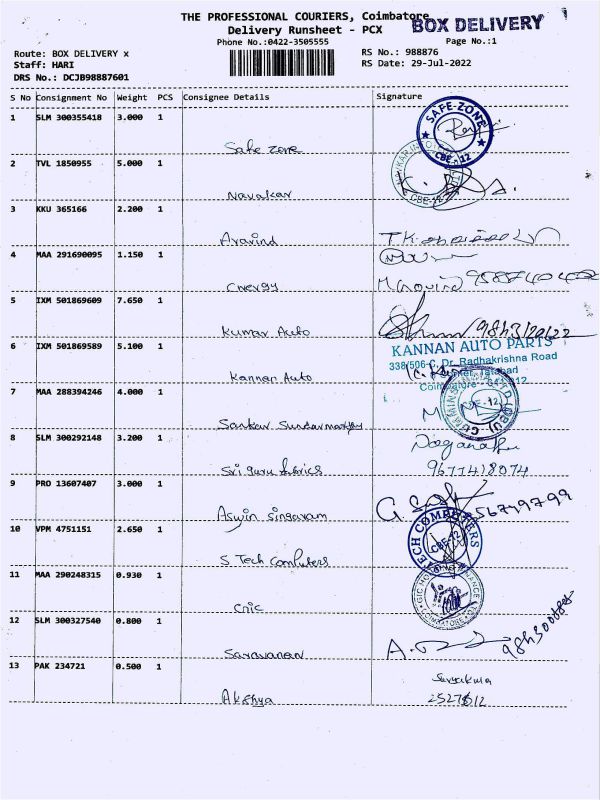 THE PROFESSIONAL COURIERS, Coimbatore
BOX DELIVERY
Delivery Runsheet - PCX
Phone No.:0422-3505555
Page No.:1
Route: BOX DELIVERY x
RS No.: 988876
Staff: HARI
RS Date: 29-Jul-2022
DRS No.: DCJB98887601
S No Consignment No Weight PCS Consignee Details Signature
1 SLM 300355418 3.000 1
SAFE-ZONE
CBE-12
Safe zone
2 TVL 1850955 5.000 1
CBE-12
Navakar
3 KKU 365166 2.200 1
Aravind
4 MAA 291690095 1.150 1
5 IXM 501869609 7.650 1
Kumar Auto
6 IXM 501869589 5.100 1
KANNAN AUTO PARTS
338/506-C, Dr. Radhakrishna Road
Kannan Auto
7 MAA 288394246 4.000 1
CBE-12
8 SLM 300292148 3.200 1
Sri guru
9677418074
9 PRO 13607407 3.000 1
Aswin Singaram
56749799
10 VPM 4751151 2.650 1
TECH COMPUTERS
CBE-12
S Tech Computers
11 MAA 290248315 0.930 1
COIMBATORE
12 SLM 300327540 0.800 1
Saravanan
13 PAK 234721 0.500 1
Akshya